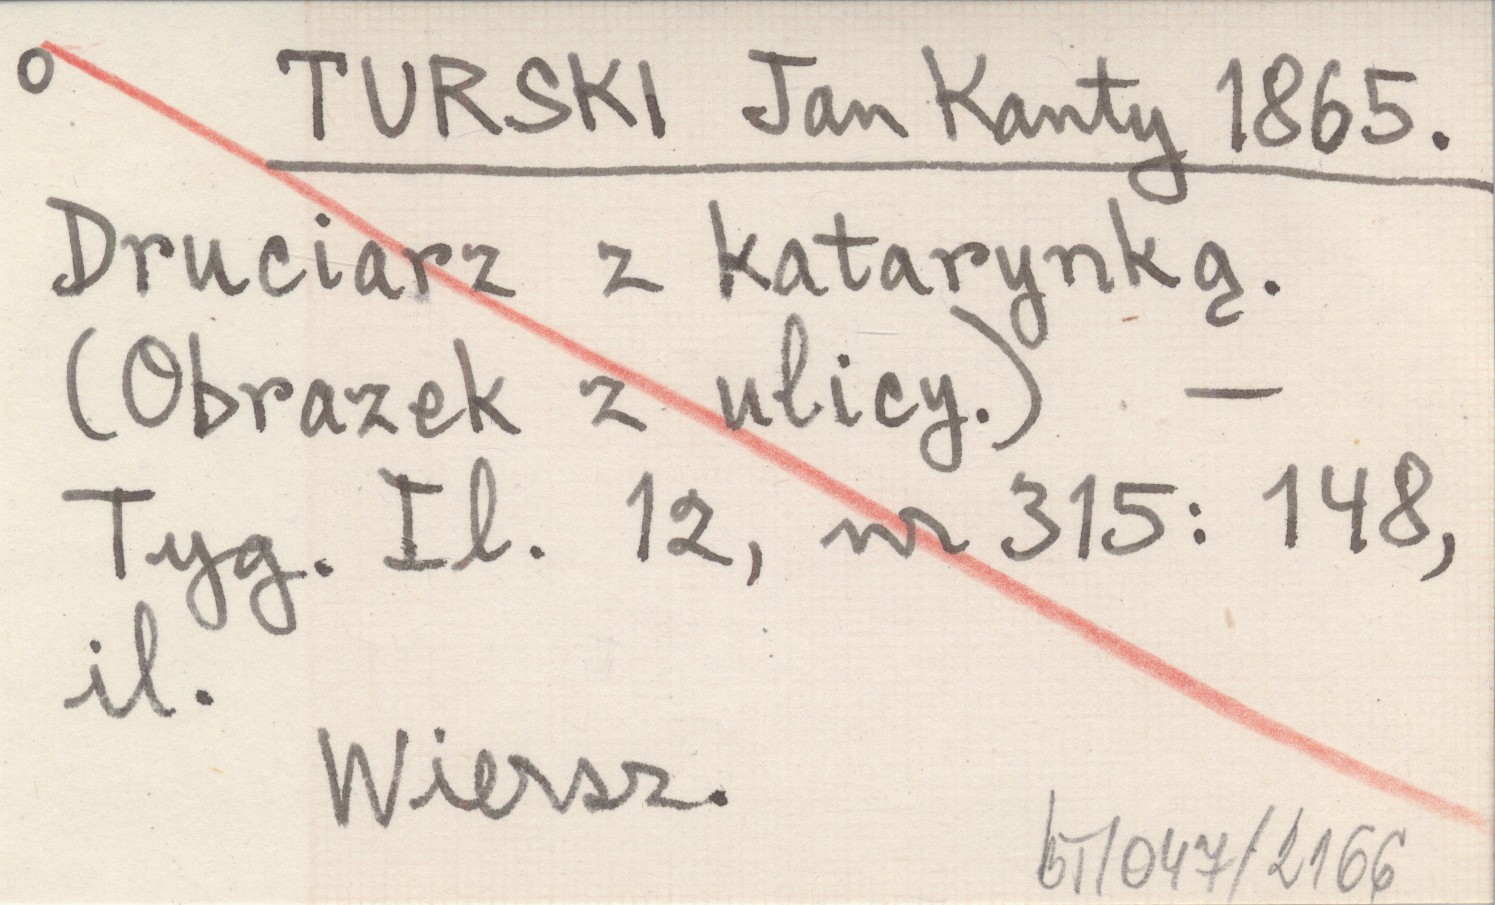 o TURSKI Jan Kanty 1865.
Druciarz z katarynką.
(Obrazek z ulicy.) —
Tyg. Il. 12, nr 315: 148,
il.
Wiersz.
bT/047/2166